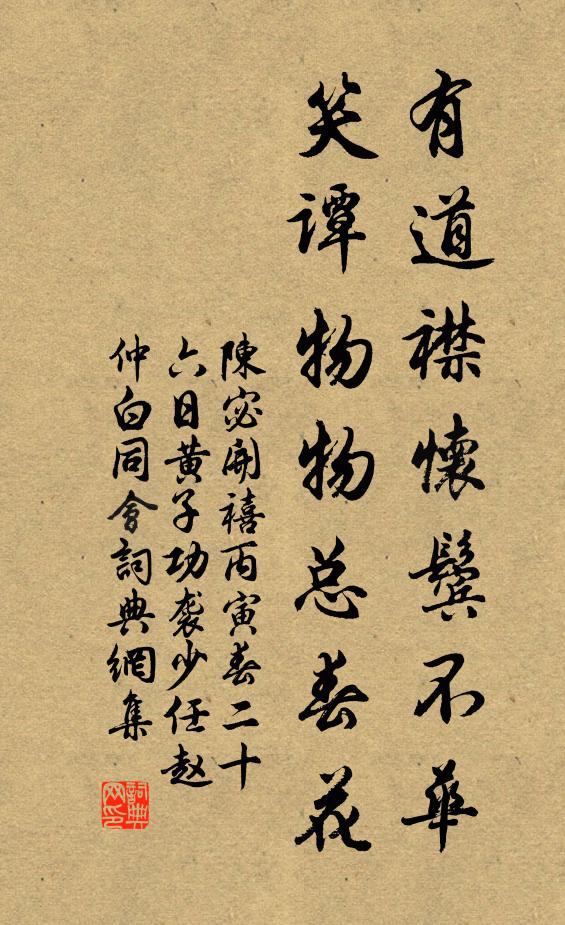 有道襟懷鬓不華
笑谭物物总春花
陳宓開禧丙寅春二十
六日黄子功袭少任赵
仲白同會詞典網集
詞典网印